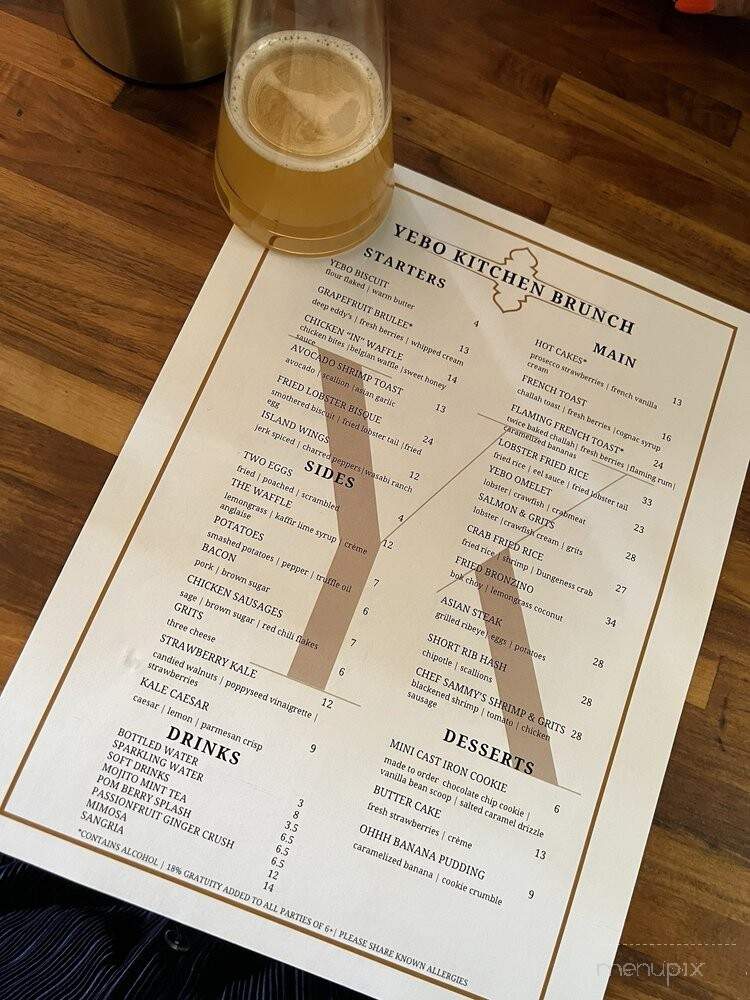 YEBO KITCHEN BRUNCH
STARTERS
YEBO BISCUIT
flour flaked | warm butter
4
GRAPEFRUIT BRULEE*
deep eddy's | fresh berries | whipped cream
13
CHICKEN "IN" WAFFLE
chicken bites |belgian waffle |sweet honey
sauce
14
AVOCADO SHRIMP TOAST
avocado | scallion |asian garlic
13
FRIED LOBSTER BISQUE
smothered biscuit | fried lobster tail |fried
egg
24
ISLAND WINGS
jerk spiced | charred peppers|wasabi ranch
12
SIDES
TWO EGGS
fried | poached | scrambled
4
THE WAFFLE
lemongrass | kaffir lime syrup | crème
anglaise
12
POTATOES
smashed potatoes | pepper | truffle oil
7
BACON
pork | brown sugar
6
CHICKEN SAUSAGES
sage | brown sugar | red chili flakes
7
GRITS
three cheese
6
STRAWBERRY KALE
candied walnuts | poppyseed vinaigrette |
strawberries
12
KALE CAESAR
caesar | lemon | parmesan crisp
9
DRINKS
BOTTLED WATER
3
SPARKLING WATER
8
SOFT DRINKS
3.5
MOJITO MINT TEA
6.5
POM BERRY SPLASH
6.5
PASSIONFRUIT GINGER CRUSH
6.5
MIMOSA
12
SANGRIA
14
MAIN
HOT CAKES*
prosecco strawberries | french vanilla
cream
13
FRENCH TOAST
challah toast | fresh berries |cognac syrup
16
FLAMING FRENCH TOAST*
twice baked challah| fresh berries |flaming rum|
caramelized bananas
24
LOBSTER FRIED RICE
fried rice | eel sauce | fried lobster tail
33
YEBO OMELET
lobster| crawfish | crabmeat
23
SALMON & GRITS
lobster |crawfish cream | grits
28
CRAB FRIED RICE
fried rice | shrimp | Dungeness crab
27
FRIED BRONZINO
bok choy | lemongrass coconut
34
ASIAN STEAK
grilled ribeye| eggs | potatoes
28
SHORT RIB HASH
chipotle | scallions
28
CHEF SAMMY'S SHRIMP & GRITS 28
blackened shrimp | tomato | chicken
sausage
DESSERTS
MINI CAST IRON COOKIE
made to order chocolate chip cookie |
vanilla bean scoop | salted caramel drizzle
6
BUTTER CAKE
fresh strawberries | crème
13
OHHH BANANA PUDDING
caramelized banana | cookie crumble
9
*CONTAINS ALCOHOL | 18% GRATUITY ADDED TO ALL PARTIES OF 6+| PLEASE SHARE KNOWN ALLERGIES
menupix